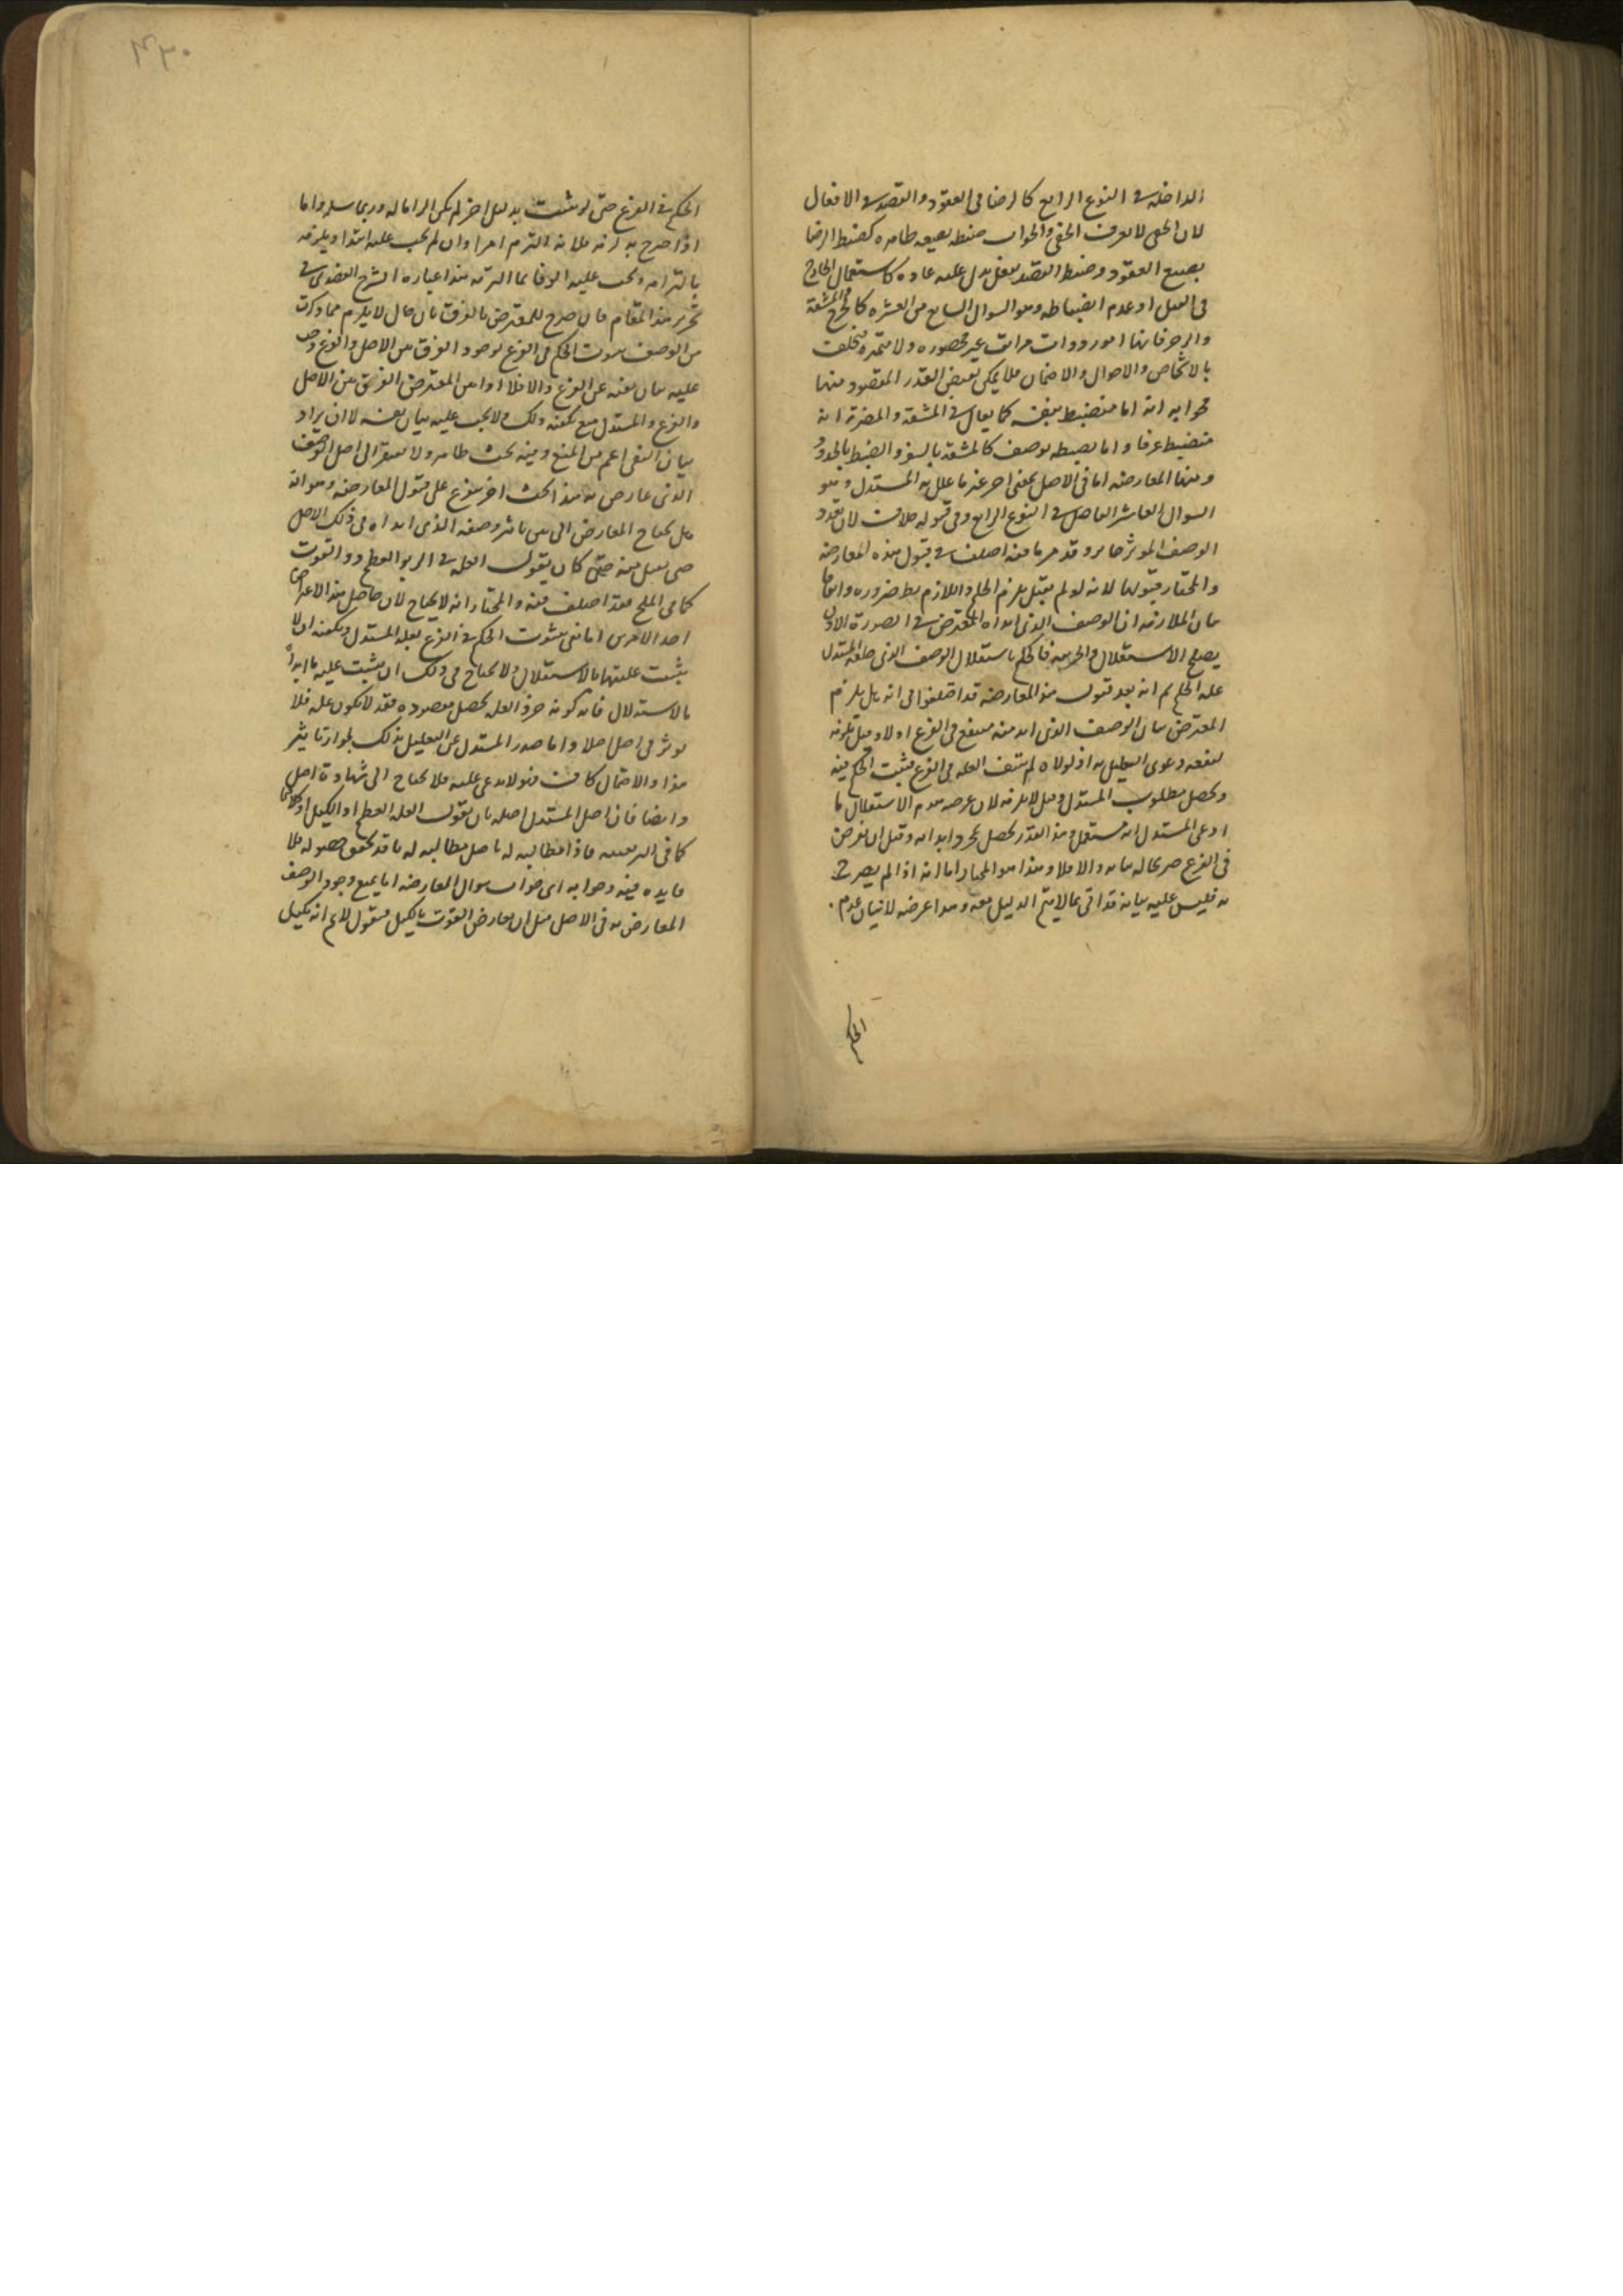 الداخلة في النوع الرابع كالرضا في العقود والقصد في الافعال
لان الخفي لا يعرف الخفي والجواب ضبطه بصيغه ظاهره كضبط الرضا
بصيغ العقود وضبط القصد بفعل يدل عليه عاده كاستعمال الجارح
في القتل او عدم انضباطه وهو السوال السابع من العشره كالحرج والمشقة
والزجر فانها امور ذوات مراتب غير محصوره ولا متميزه ويختلف
بالاشخاص والاحوال والازمان فلا يمكن تعيين القدر المقصود منها
فجوابه انه اما منضبط بنفسه كما يقال في المشقة والمضرة انه
منضبط عرفا واما بضبطه بوصف كالمشقه بالسفر والضبط بالحدود
ومنها المعارضه اما في الاصل بمعنى اخر غير ما علل به المستدل وهو
السوال العاشر الداخل في النوع الرابع وفي قبوله خلاف لان تعدد
الوصف الموثر جايز وقد مر ما فيه اختلف في قبول هذه المعارضه
والمختار قبولها لانه لو لم يقبل يلزم التحكم واللازم بط ضروره واتفاقا
بيان الملازمه ان الوصف الذي ابداه المعترض في الصورة الاولى
يصلح الاستقلال والجزييه فالحكم باستقلال الوصف الذي جعله المستدل
عله تحكم ثم انه بعد قبول هذه المعارضه قد اختلفوا في انه هل يلزم
المعترض بيان الوصف الذي ابداه منتف في الفرع اولا وقيل يلزمه
لينفعه دعوى التعليل به اذ لولاه لم تنتف العله في الفرع فثبت الحكم فيه
ويحصل مطلوب المستدل وقيل لا يلزمه لان غرضه عدم الاستقلال ما
ادعى المستدل انه مستقل وهذا القدر يحصل بمجرد ابدائه وقيل ان تعرض
في الفرع صريحا لزمه بيانه والا فلا وهذا هو المختار اما انه اذا لم يصرح
به فليس عليه بيانه فقد اتى بما لا يتم الدليل معه وهذا غرضه لا بيان عدم
الحكم
٤٣٠
الحكم في الفرع حتى لو ثبت بدليل اخر لم يكن الزاما له وربما سلمه واما
اذا صرح به لزمه فلانه التزم امرا وان لم يجب عليه ابتدا ويلزمه
بالتزامه ويجب عليه الوفا بما التزمه هذا عبارة الشرح العضدي في
تحرير هذا المقام فان صرح المعترض بالفرق بان قال لا يلزم مما ذكرت
من الوصف ثبوت الحكم في الفرع لوجود الفرق بين الاصل والفرع وجب
عليه بيان نفيه عن الفرع والا فلا
والفرع والمستدل مع تمكنه ذلك ولا يجب عليه بيان نفيه لا ان يراد
بيان النفي اعم من المنع وفيه بحث ظاهر ولا يفتقر الى اصل الوصف
الذي عارض به هذا بحث اخر متفرع على قبول المعارضه وهو انه
هل يحتاج المعارض الى ان يبين تاثير وصفه الذي ابداه في ذلك الاصل
حتى يقبل منه حتى كان يقول العله في الربو الطعم دون القوت
كما في الملح فقد اختلف فيه والمختار انه لا يحتاج لان حاصل هذا الاعتراض
احد الامرين اما نفي ثبوت الحكم في الفرع بعله المستدل ويكفيه ان لا
يثبت عليتها بالاستقلال ولا يحتاج في ذلك ان يثبت علية ما ابداه
بالاستدلال فانه كونه جزء العله يحصل مقصوده فقد لا يكون عله فلا
يوثر في اصل اصلا واما صد المستدل عن التعليل بذلك لجواز تاثير
هذا والاحتمال كاف فهو لا يدعي عليه فلا يحتاج الى شهادة اصل
وايضا فان اصل المستدل اصله بان يقول العله الطعم او الكيل او كلاهما
كما في البر بعينه فاذا مطالبته له باصل مطالبه له بما قد تحقق حصوله فلا
فايده فيه وجوابه اي جواب سوال المعارضه اما بمنع وجود الوصف
المعارض به في الاصل مثل ان يعارض القوت بالكيل فيقول لا نم انه مكيل